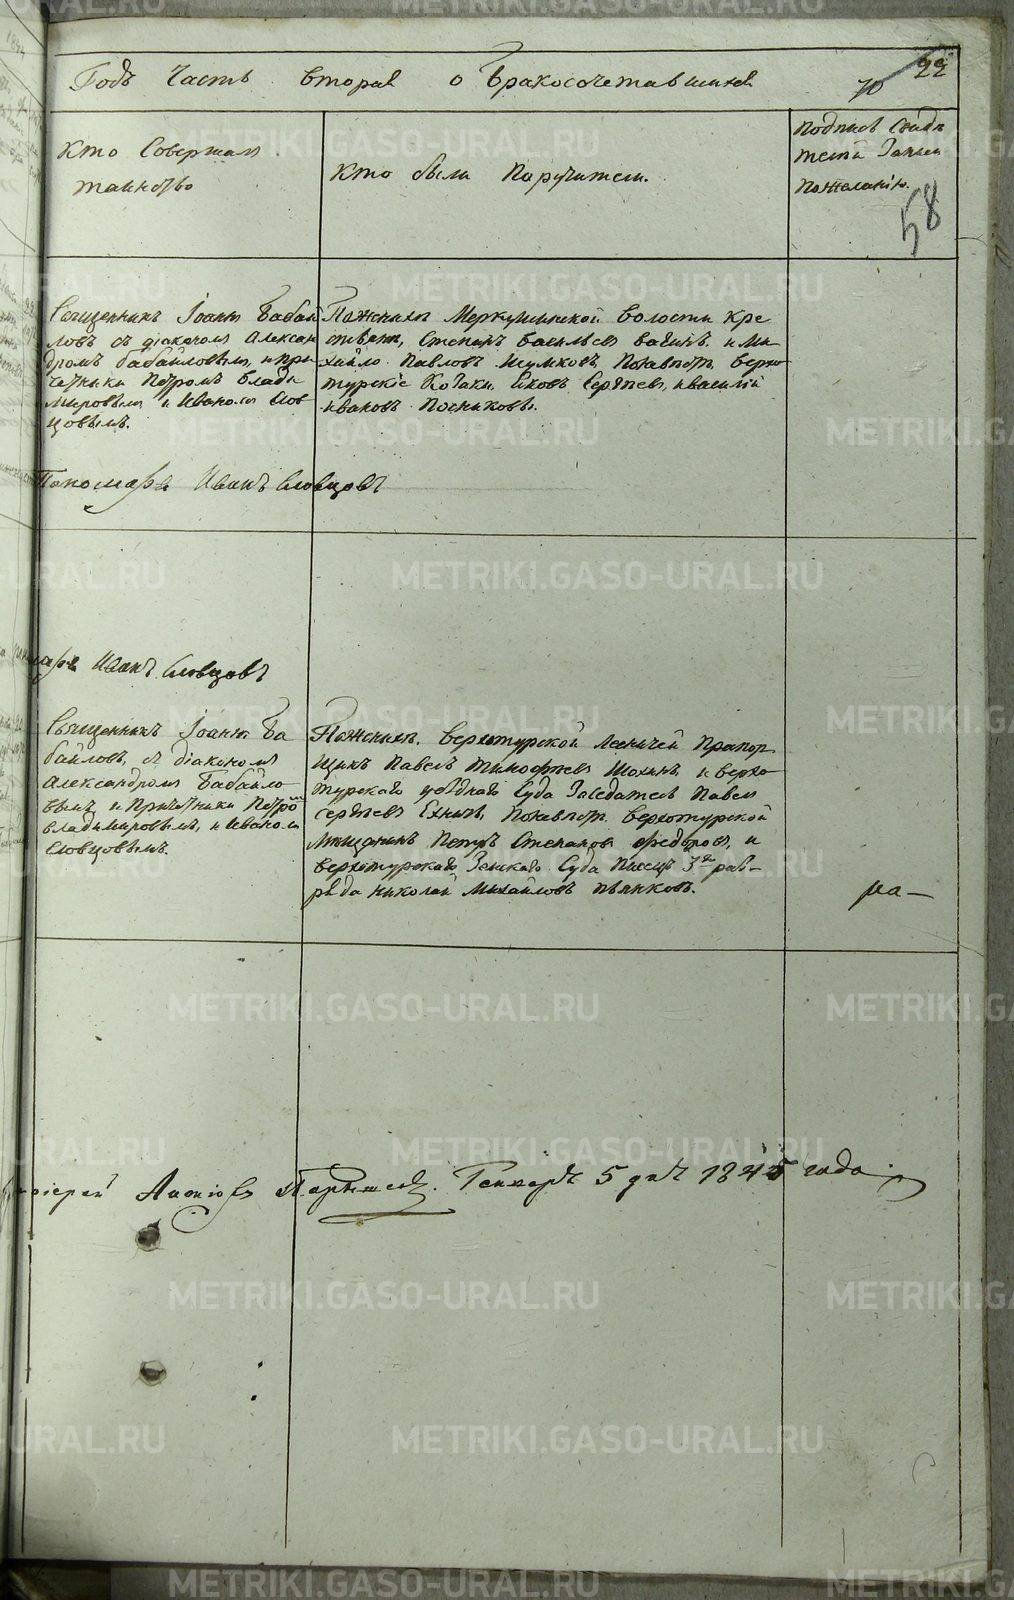 Годъ Часть вторая о бракосочетавшихся
70
22
Кто Совершалъ
таинство
Кто были Поручители.
подпись Свидѣ
телей Записи
пожеланію.
58
Священникъ Іоаннъ Бабай
ловъ съ діакономъ Алексан
дромъ Бабайловымъ, и при
четники Петромъ Влади
мировымъ и Иваномъ Слов
цовымъ.
Пономарь Иванъ Словцовъ
Поженихѣ Меркушинской волости кре
стьяне, Степанъ Васильевъ и Ми
хайло Павловъ Поневѣстѣ, Верхо
турскіе Козаки, Яковъ Сергѣевъ, и Василій
Ивановъ Посниковы.
Иванъ Словцовъ
Священникъ Іоаннъ Ба
байловъ, съ діакономъ
Александромъ Бабайло
вымъ и Причетники Петро
Владимировымъ, и Иваномъ
Словцовымъ.
Поженихѣ. Верхотурской Лесничей Прапор
щикъ Павелъ Тимофѣевъ Шохинъ, и верхо
турскаго уѣзднаго Суда Засѣдатель Павелъ
Сергѣевъ Поневѣстѣ. Верхотурской
Мѣщанинъ Петръ Степановъ Федоровъ, и
верхотурскаго Земскаго Суда Писецъ 3го раз-
ряда Николай Михайловъ Пьянковъ.
Парышевъ. Генваря 5 дня 1845 года
METRIKI.GASO-URAL.RU